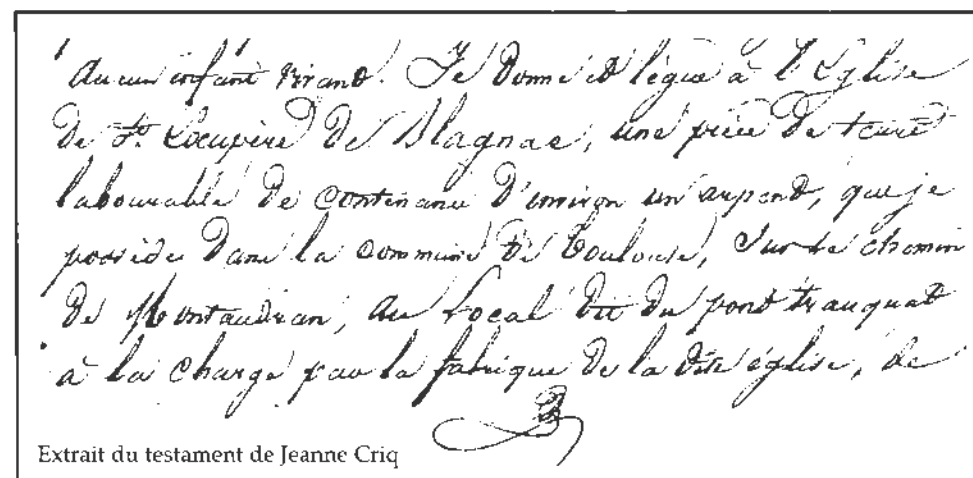 aucun enfant vivant. Je donne et légue à l'Eglise
de St. Exupère de Blagnac, une pièce de terre
labourable de contenance d'environ un arpent, que je
possède dans la commune de Toulouse, sur le chemin
de Montaudran, au local dit du pont trauquat
à la charge par la fabrique de la dite église, de
Extrait du testament de Jeanne Criq